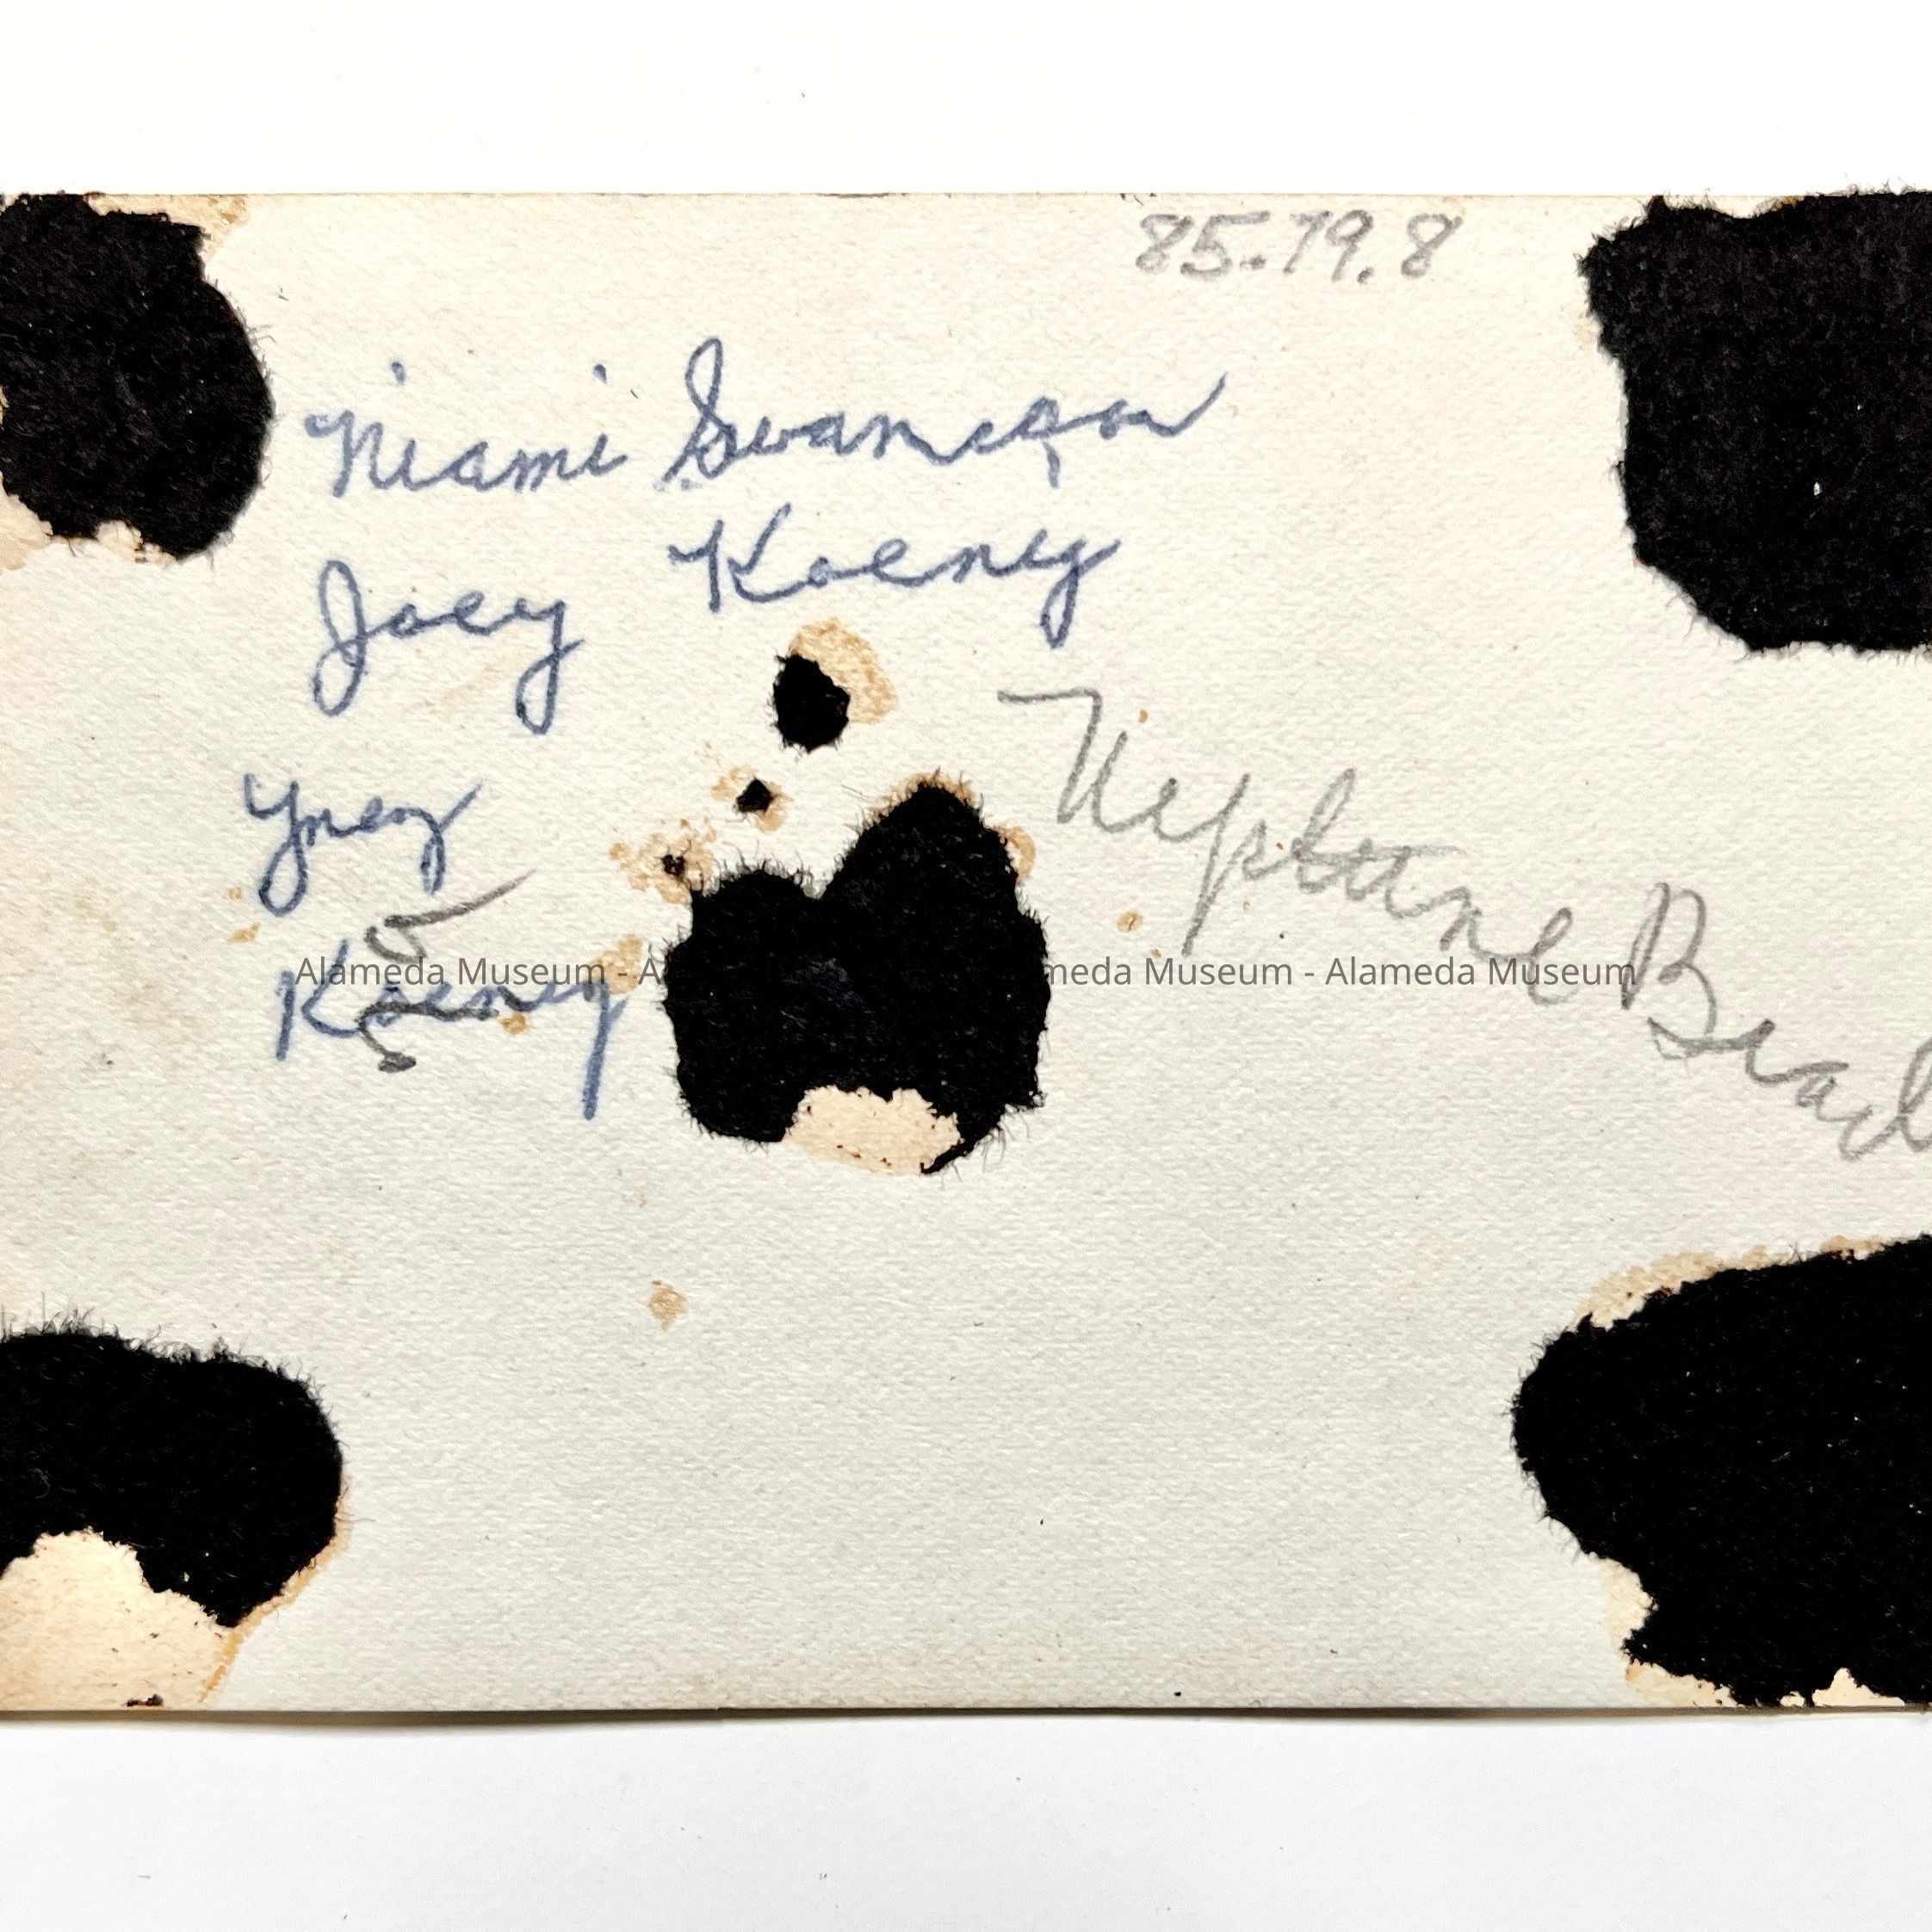 85.79.8
Niami Swanson
Joey Koenig
Ynez
Koenig
Neptune Beach
Alameda Museum - A meda Museum - Alameda Museum